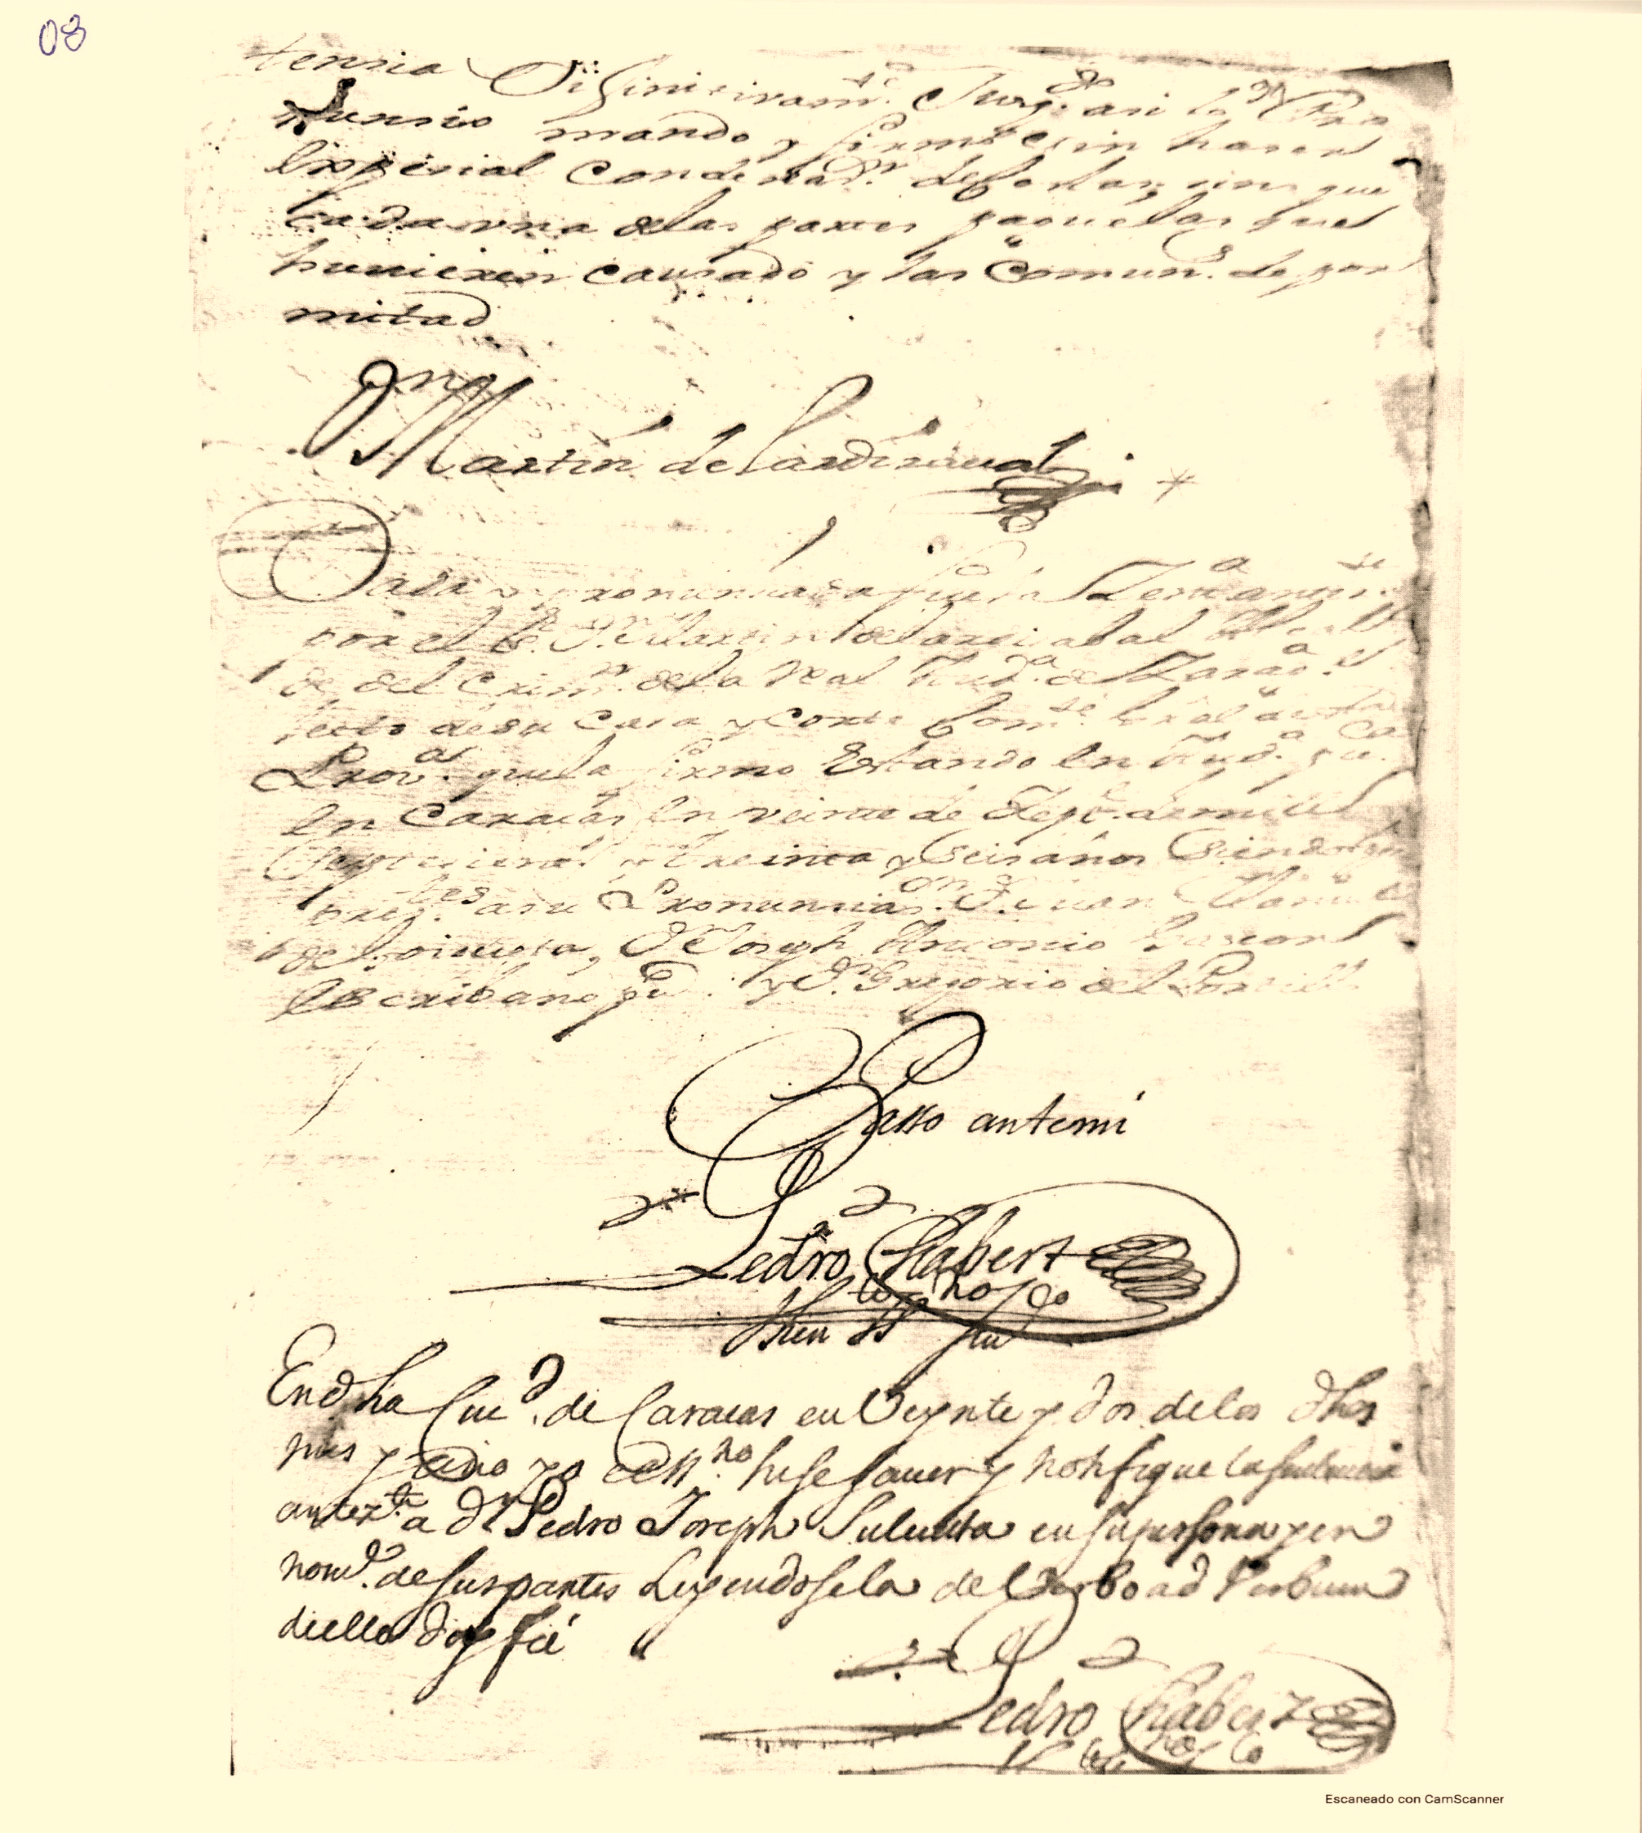 08
tensia Difinitivamte. Jusgdo. asi lo Pro
nunsio mando y firmo sin haser
Espesial Condenasn. de costas sino que
cada una de las partes pague las que
huvieren causado y las Comuns. de por
mitad
Dn Martin de Lardizaval
Dada y pronunciada fue la Senta. ante.
por el Sr. Dn. Martin de Lardizabal Alcal
de del Crimn. de la Real Auda. de Zarag
de su Casa y Corte Comte. Gral de esta
Prova. que la firmo Estando en Auda. pca.
En Caracas En veinte de Sept. de mill
Septesiens. y treinta y Seis años Siendo
a su Pronunciasn. Dn. Juan Manuel
Dn Joseph Antonio Gascon
Escribano pco. y Dn. Gregorio del Portillo
Passo antemi
Pedro Chabert
En dha Ciud. de Caracas en Veynte y dos de los dhos
mes y año yo el essno hise saver y notifique la sentencia
anterte. a Dn Pedro Joseph en su persona y en
nome. de sus partes Leyendosela de Verbo ad Verbum
de ello doy feé
Pedro Chabert
Escaneado con CamScanner